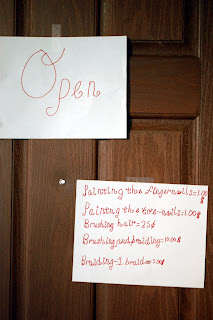 Open
Painting the fingernails=1.00
$
Painting the toe-nails=1.00$
Brushing hair=25¢
Brushing and braiding=10.00$
Braiding-1 braid=5.00$